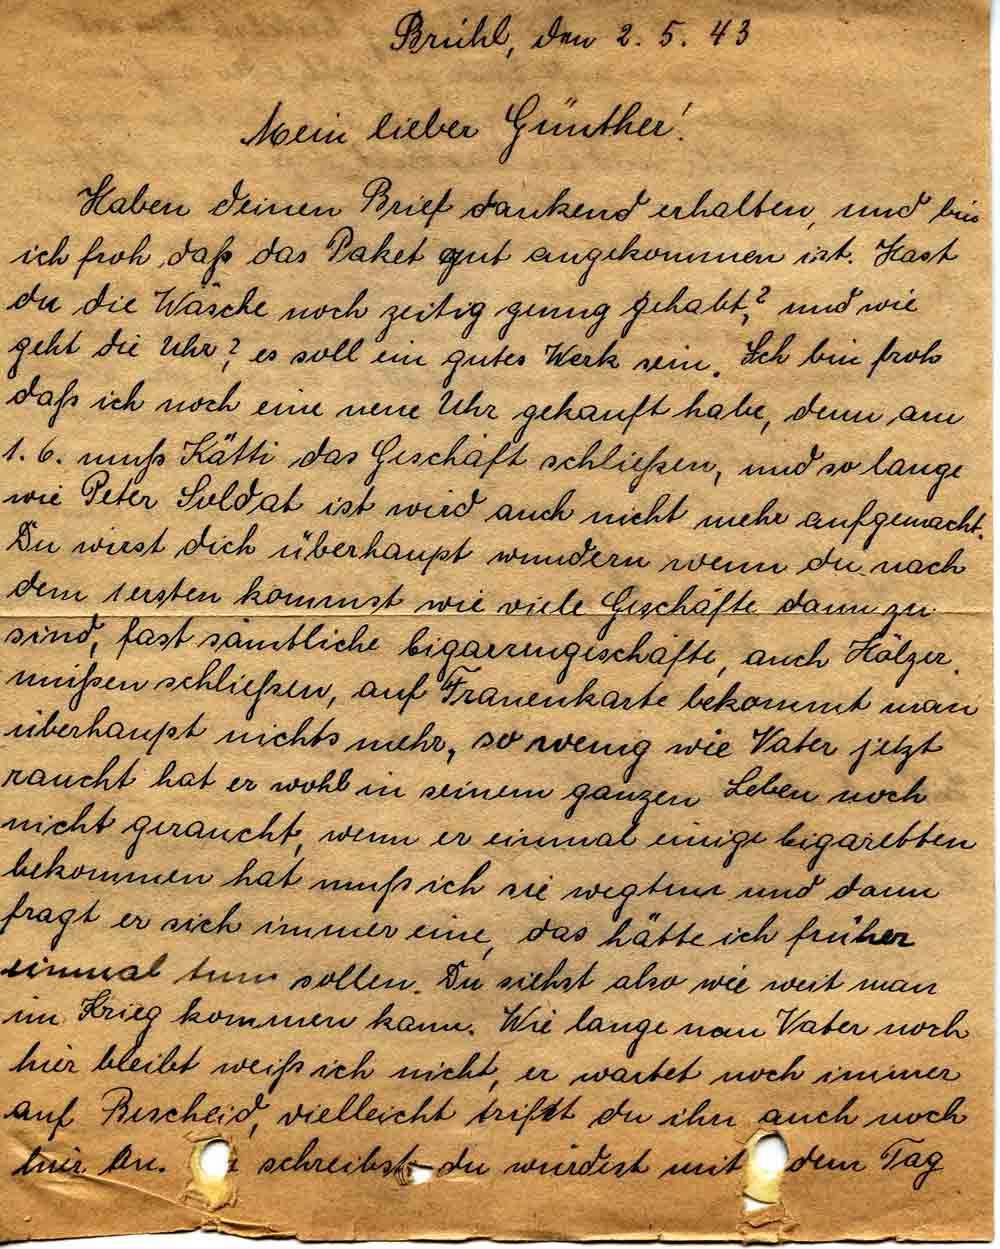 Brühl, den 2. 5. 43
Mein lieber Günther!
Haben deinen Brief dankend erhalten, und bin
ich froh daß das Paket gut angekommen ist. Hast
du die Wäsche noch zeitig genug gehabt,? und wie
geht die Uhr? es soll ein gutes Werk sein. Ich bin froh
daß ich noch eine neue Uhr gekauft habe, denn am
1. 6. muß Kätti das Geschäft schließen, und so lange
wie Peter Soldat ist wird auch nicht mehr aufgemacht.
Du wirst dich überhaupt wundern wenn du nach
dem 1ersten kommst wie viele Geschäfte dann zu
sind, fast sämtliche Cigarrengeschäfte, auch Hölzer,
müßen schließen, auf Frauenkarte bekommt man
überhaupt nichts mehr, so wenig wie Vater jetzt
raucht hat er wohl in seinem ganzen Leben noch
nicht geraucht, wenn er einmal einige Cigaretten
bekommen hat muß ich sie wegtun und dann
fragt er sich immer eine, das hätte ich früher
einmal tun sollen. Du siehst also wie weit man
im Krieg kommen kann. Wie lange nun Vater noch
hier bleibt weiß ich nicht, er wartet noch immer
auf Bescheid, vielleicht trifst du ihn auch noch
hier an. schreibst du würdest mit dem Tag